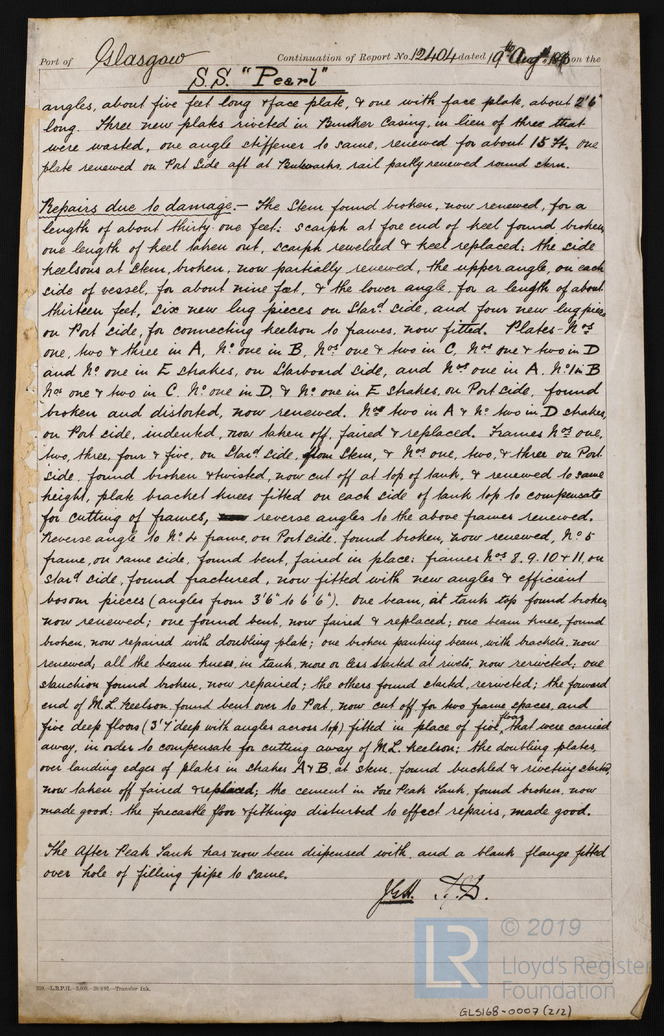 Port of Glasgow Continuation of Report No. 12404 dated 19th Augt. 1893 on the
S.S. "Pearl"
angles, about five feet long & face plate, & one with face plate, about 2'6"
long. Three new plates riveted in Bunker Casing, in lieu of three that
were wasted, one angle stiffener to same, renewed for about 15 ft, one
plate renewed on Port Side aft at Bulwarks, rail partly renewed round stern.
Repairs due to damage:- The Stem found broken, now renewed, for a
length of about thirty one feet; scarph at fore end of keel found broken,
one length of keel taken out, scarph rewelded & keel replaced; the side
keelsons at stem, broken, now partially renewed, the upper angle, on each
side of vessel, for about nine feet, & the lower angle, for a length of about
thirteen feet, six new lug pieces on Stard side, and four new lug pieces
on Port side, for connecting keelson to frames, now fitted. Plates - Nos
one, two & three in A, No one in B, Nos one & two in C, Nos one & two in D
and No one in E strakes, on Starboard side, and Nos one in A. No 1 in B
Nos one & two in C. No one in D, & No one in E strakes, on Port side, found
broken and distorted, now renewed. Nos two in A & No two in D strakes,
on Port side, indented, now taken off, faired & replaced. Frames Nos one,
two, three, four & five, on Stard side, from stem, & Nos one, two, & three on Port
side, found broken & twisted, now cut off at top of tank, & renewed to same
height, plate bracket knees fitted on each side of tank top to compensate
for cutting of frames, reverse angles to the above frames renewed.
Reverse angle to No 4 frame, on Port side, found broken, now renewed, No 5
frame, on same side, found bent, faired in place; frames Nos 8. 9. 10 & 11, on
Stard side, found fractured, now fitted with new angles & efficient
bosom pieces (angles from 3'6" to 6'6"). One beam, at tank top found broken,
now renewed; one found bent, now faired & replaced; one beam knee, found
broken, now repaired with doubling plate; one broken panting beam, with brackets, now
renewed, all the beam knees, in tank, more or less started at rivets, now reriveted, one
stanchion found broken, now repaired; the others found started, reriveted; the forward
end of M.L. keelson, found bent over to Port, now cut off, for two frame spaces, and
five deep floors (3'7" deep with angles across top) fitted in place of five floors, that were carried
away, in order to compensate for cutting away of M.L. keelson; the doubling plates,
over landing edges of plates in strakes A & B, at stem, found buckled & riveting started,
now taken off faired & replaced; the cement in Fore Peak Tank, found broken, now
made good; the forecastle floor & fittings disturbed to effect repairs, made good.
The After Peak Tank has now been dispensed with, and a blank flange fitted
over hole of filling pipe to same.
© 2019
LR
Lloyd's Register
Foundation
GLS168-0007 (2/2)